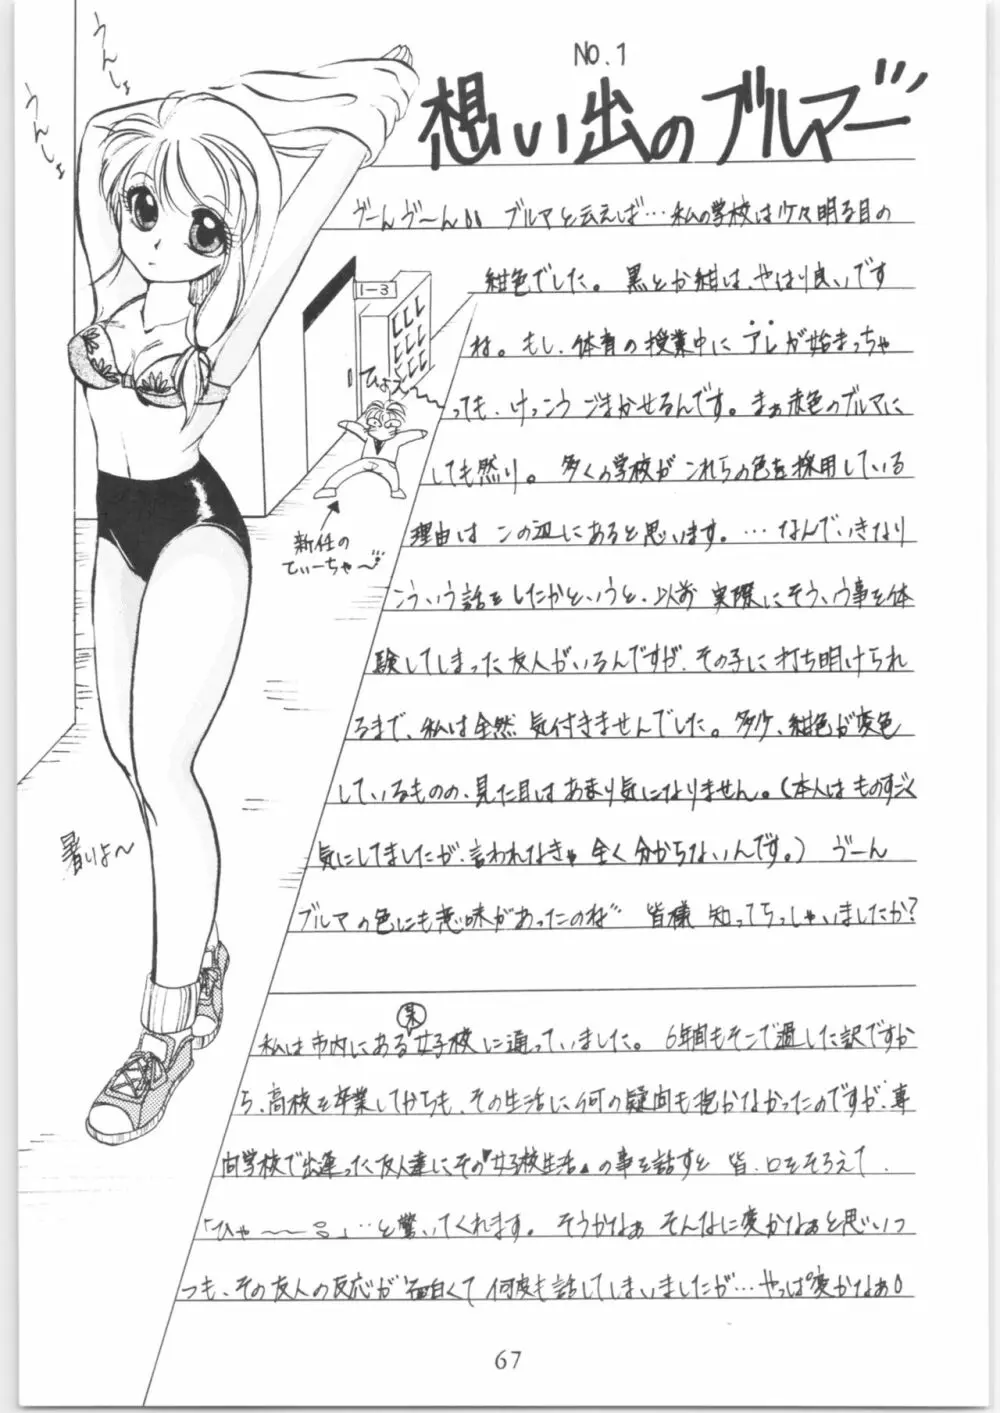 NO.1
想い出のブルマー
うんしょ
うんしょ
ゔーんゔーん!! ブルマと云えば…私の学校は少々明る目の
紺色でした。黒とか紺は、やはり良いです
ね。もし、体育の授業中にアレが始まっちゃ
っても、けっこうごまかせるんです。まぁ赤色のブルマに
しても然り。多くの学校がこれらの色を採用している
理由はこの辺にあると思います。…なんでいきなり
こういう話をしたかというと、以前実際にそういう事を体
験してしまった友人がいるんですが、その子に打ち明けられ
るまで、私は全然気付きませんでした。多少、紺色が変色
しているものの、見た目はあまり気になりません。(本人はものすごく
気にしてましたが、言われなきゃ全く分からないんです。) ゔーん
ブルマの色にも意味があったのね 皆様知ってらっしゃいましたか?
1-3
ひょえ
新任の
てぃーちゃ〜
暑いよ〜
私は市内にある某女子校に通っていました。6年間もそこで過した訳ですか
ら、高校を卒業してからも、その生活に何の疑問も抱かなかったのですが、専
門学校で出逢った友人達にその『女子校生活』の事を話すと皆、口をそろえて、
「ひゃ〜〜〜。」…と驚いてくれます。そうかなぁそんなに変かなぁと思いつ
つも、その友人の反応が面白くて何度も話してしまいましたが…やっぱ変かなぁ。
67